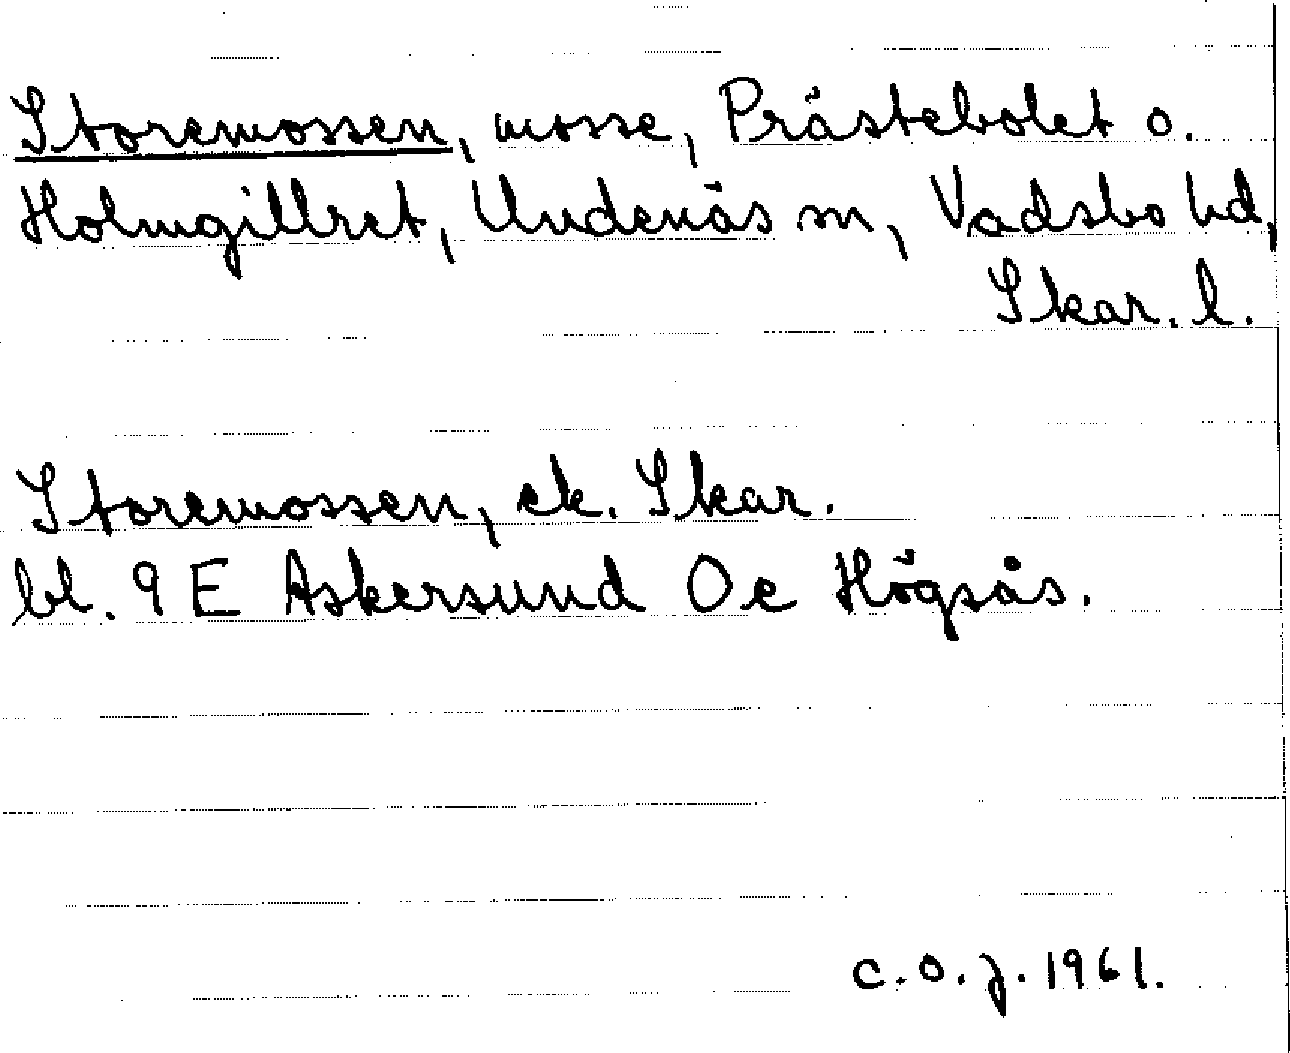 Storemossen, mosse, Prästebolet o.
Holmgillret, Undenäs sn, Vadsbo hd,
Skar. l.
Storemossen, ek. Skar.
bl. 9 E Askersund Oe Högsås.
C.O.J. 1961.